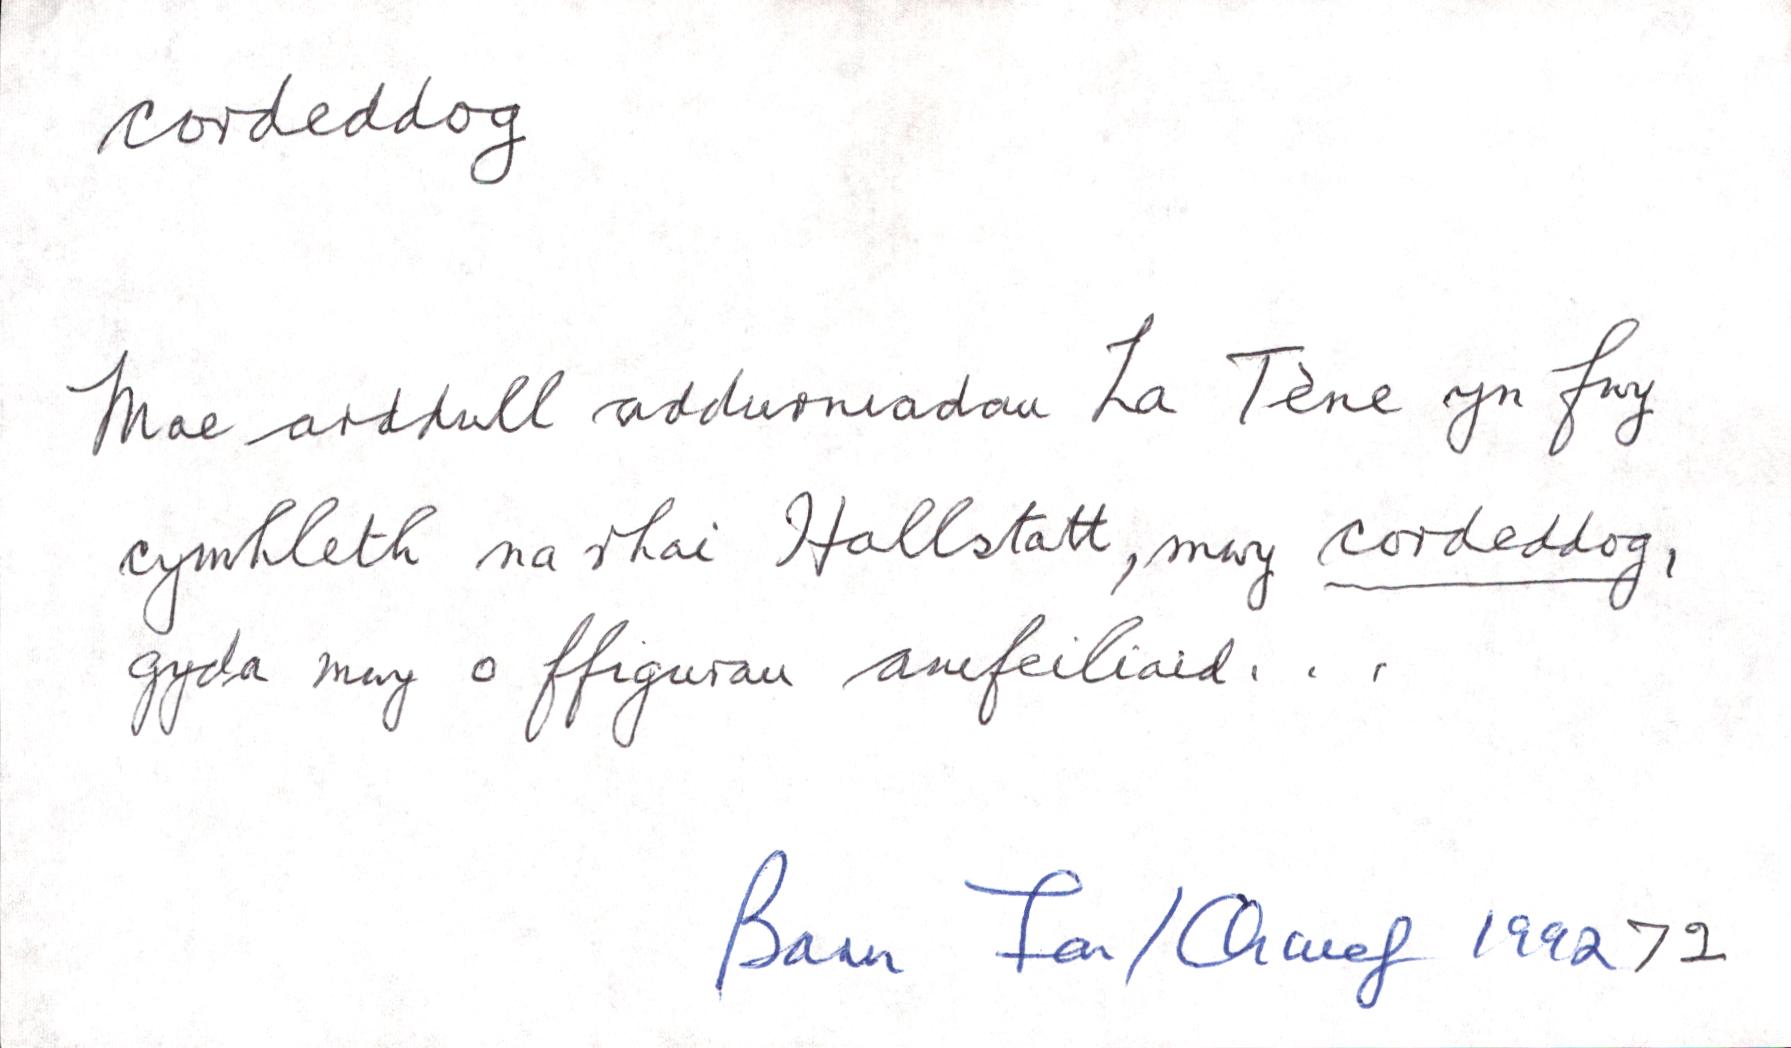 cordeddog
Mae arddull addurniadau La Tène yn fwy
cymhleth na rhai Hallstatt, mwy cordeddog,
gyda mwy o ffigurau anifeiliaid. . .
Barn Ion/Chwef 1992 72